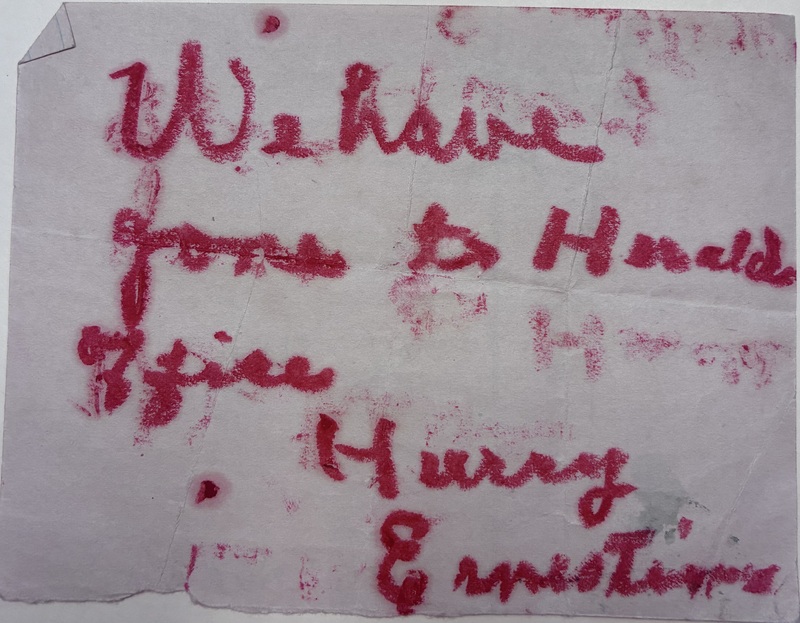 We have
gone to Heralds
Office
Hurry
Ernestine